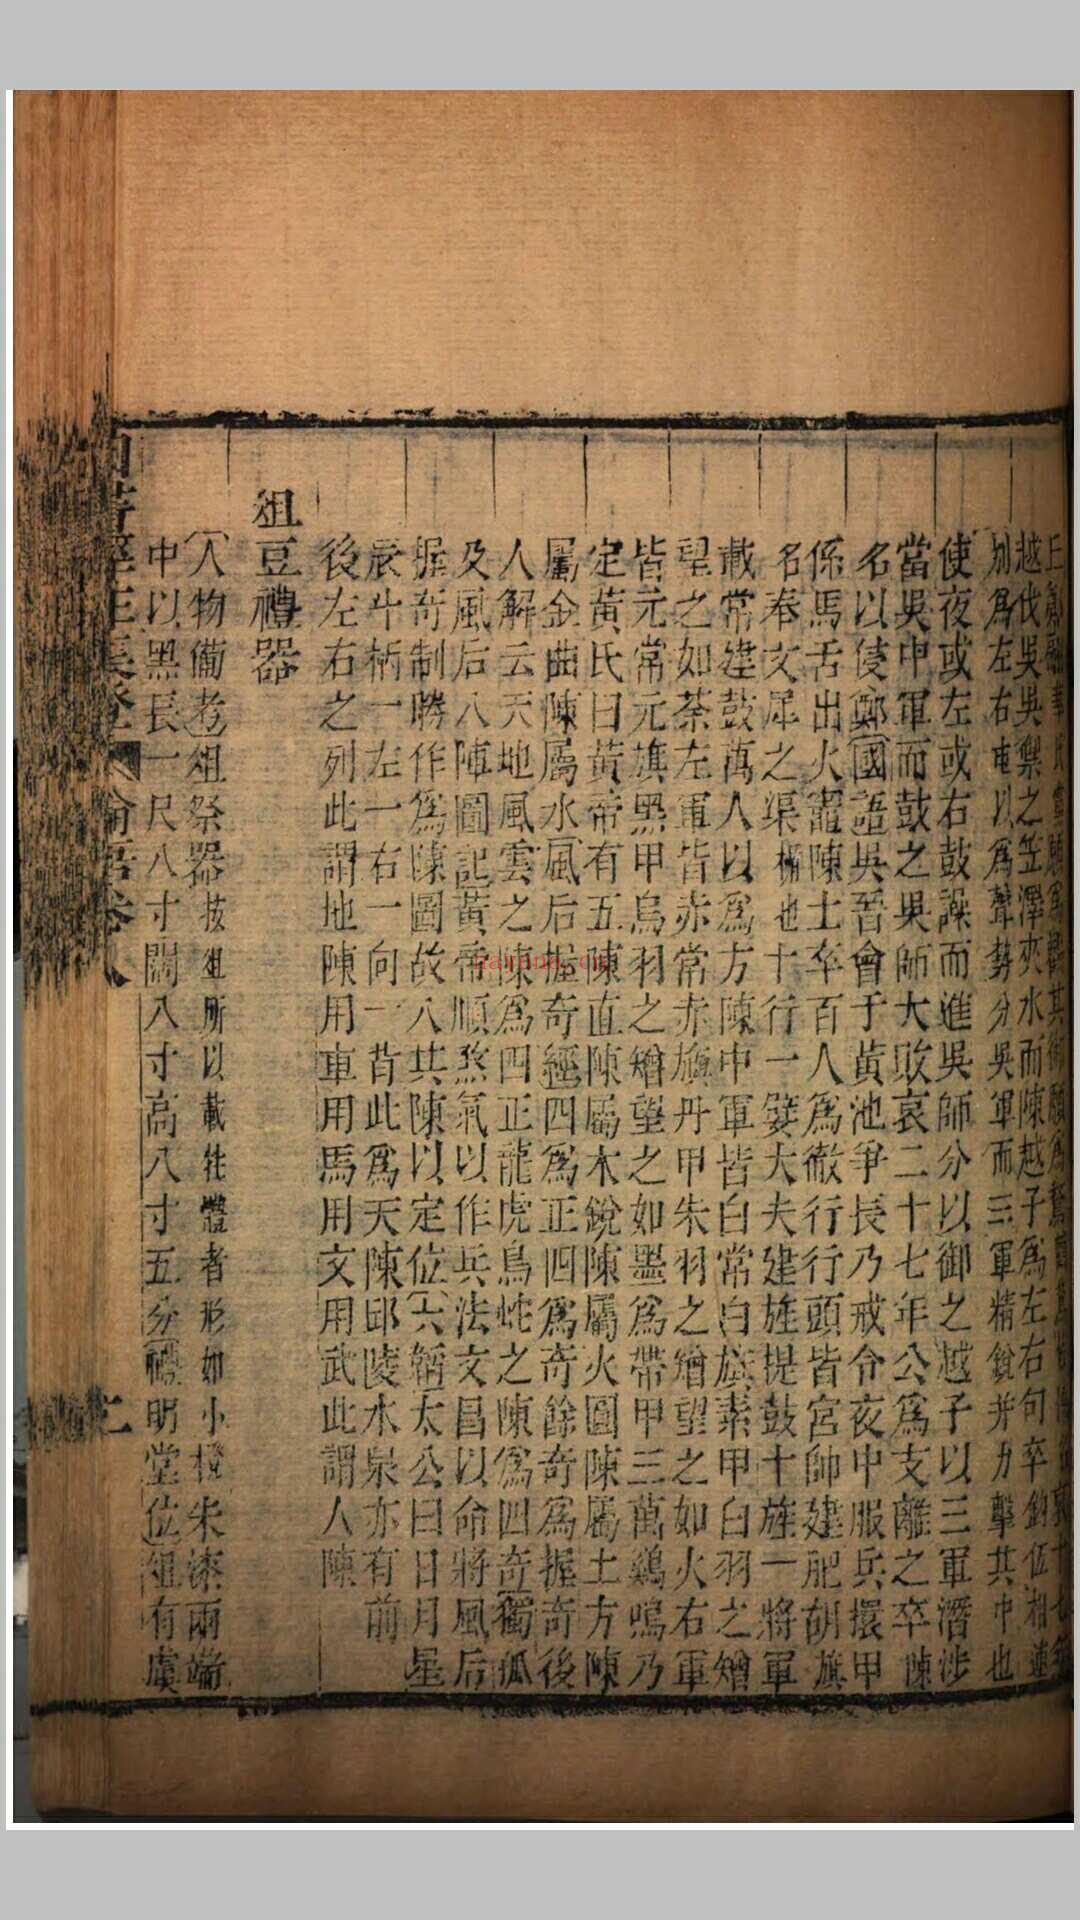 越伐吳吳禦之笠澤夾水而陳越子爲左右句卒鈎伍相連
別爲左右屯以爲聲勢分吳軍而三軍精銳并力擊其中也
使夜或左或右鼓譟而進吳師分以御之越子以三軍潛涉
當吳中軍而鼓之吳師大敗哀二十七年公爲支離之卒陳
名以使鄭國語吳晉會于黃池爭長乃戒令夜中服兵擐甲
係馬舌出火竈陳士卒百人爲徹行行頭皆官帥建肥胡旗
名奉文犀之渠楯也十行一嬖大夫建旌提鼓十旌一將軍
載常建鼓萬人以爲方陳中軍皆白常白旗素甲白羽之矰
望之如荼左軍皆赤常赤旟丹甲朱羽之矰望之如火右軍
皆元常元旗黑甲烏羽之矰望之如墨爲帶甲三萬鷄鳴乃
定黃氏曰黃帝有五陳直陳屬木銳陳屬火圓陳屬土方陳
屬金曲陳屬水風后握奇經四爲正四爲奇餘奇爲握奇後
人解云天地風雲之陳爲四正龍虎鳥蛇之陳爲四奇獨孤
及風后八陣圖記黃帝順煞氣以作兵法文昌以命將風后
握奇制勝作爲陳圖故八其陳以定位六韜太公曰日月星
辰斗柄一左一右一向一背此爲天陳邱陵水泉亦有前
後左右之列此謂地陳用車用馬用文用武此謂人陳
俎豆禮器
人物備考俎祭器按俎所以載牲體者形如小櫈朱漆兩端
中以黑長一尺八寸闊八寸高八寸五分禮明堂位俎有虞
論語卷八